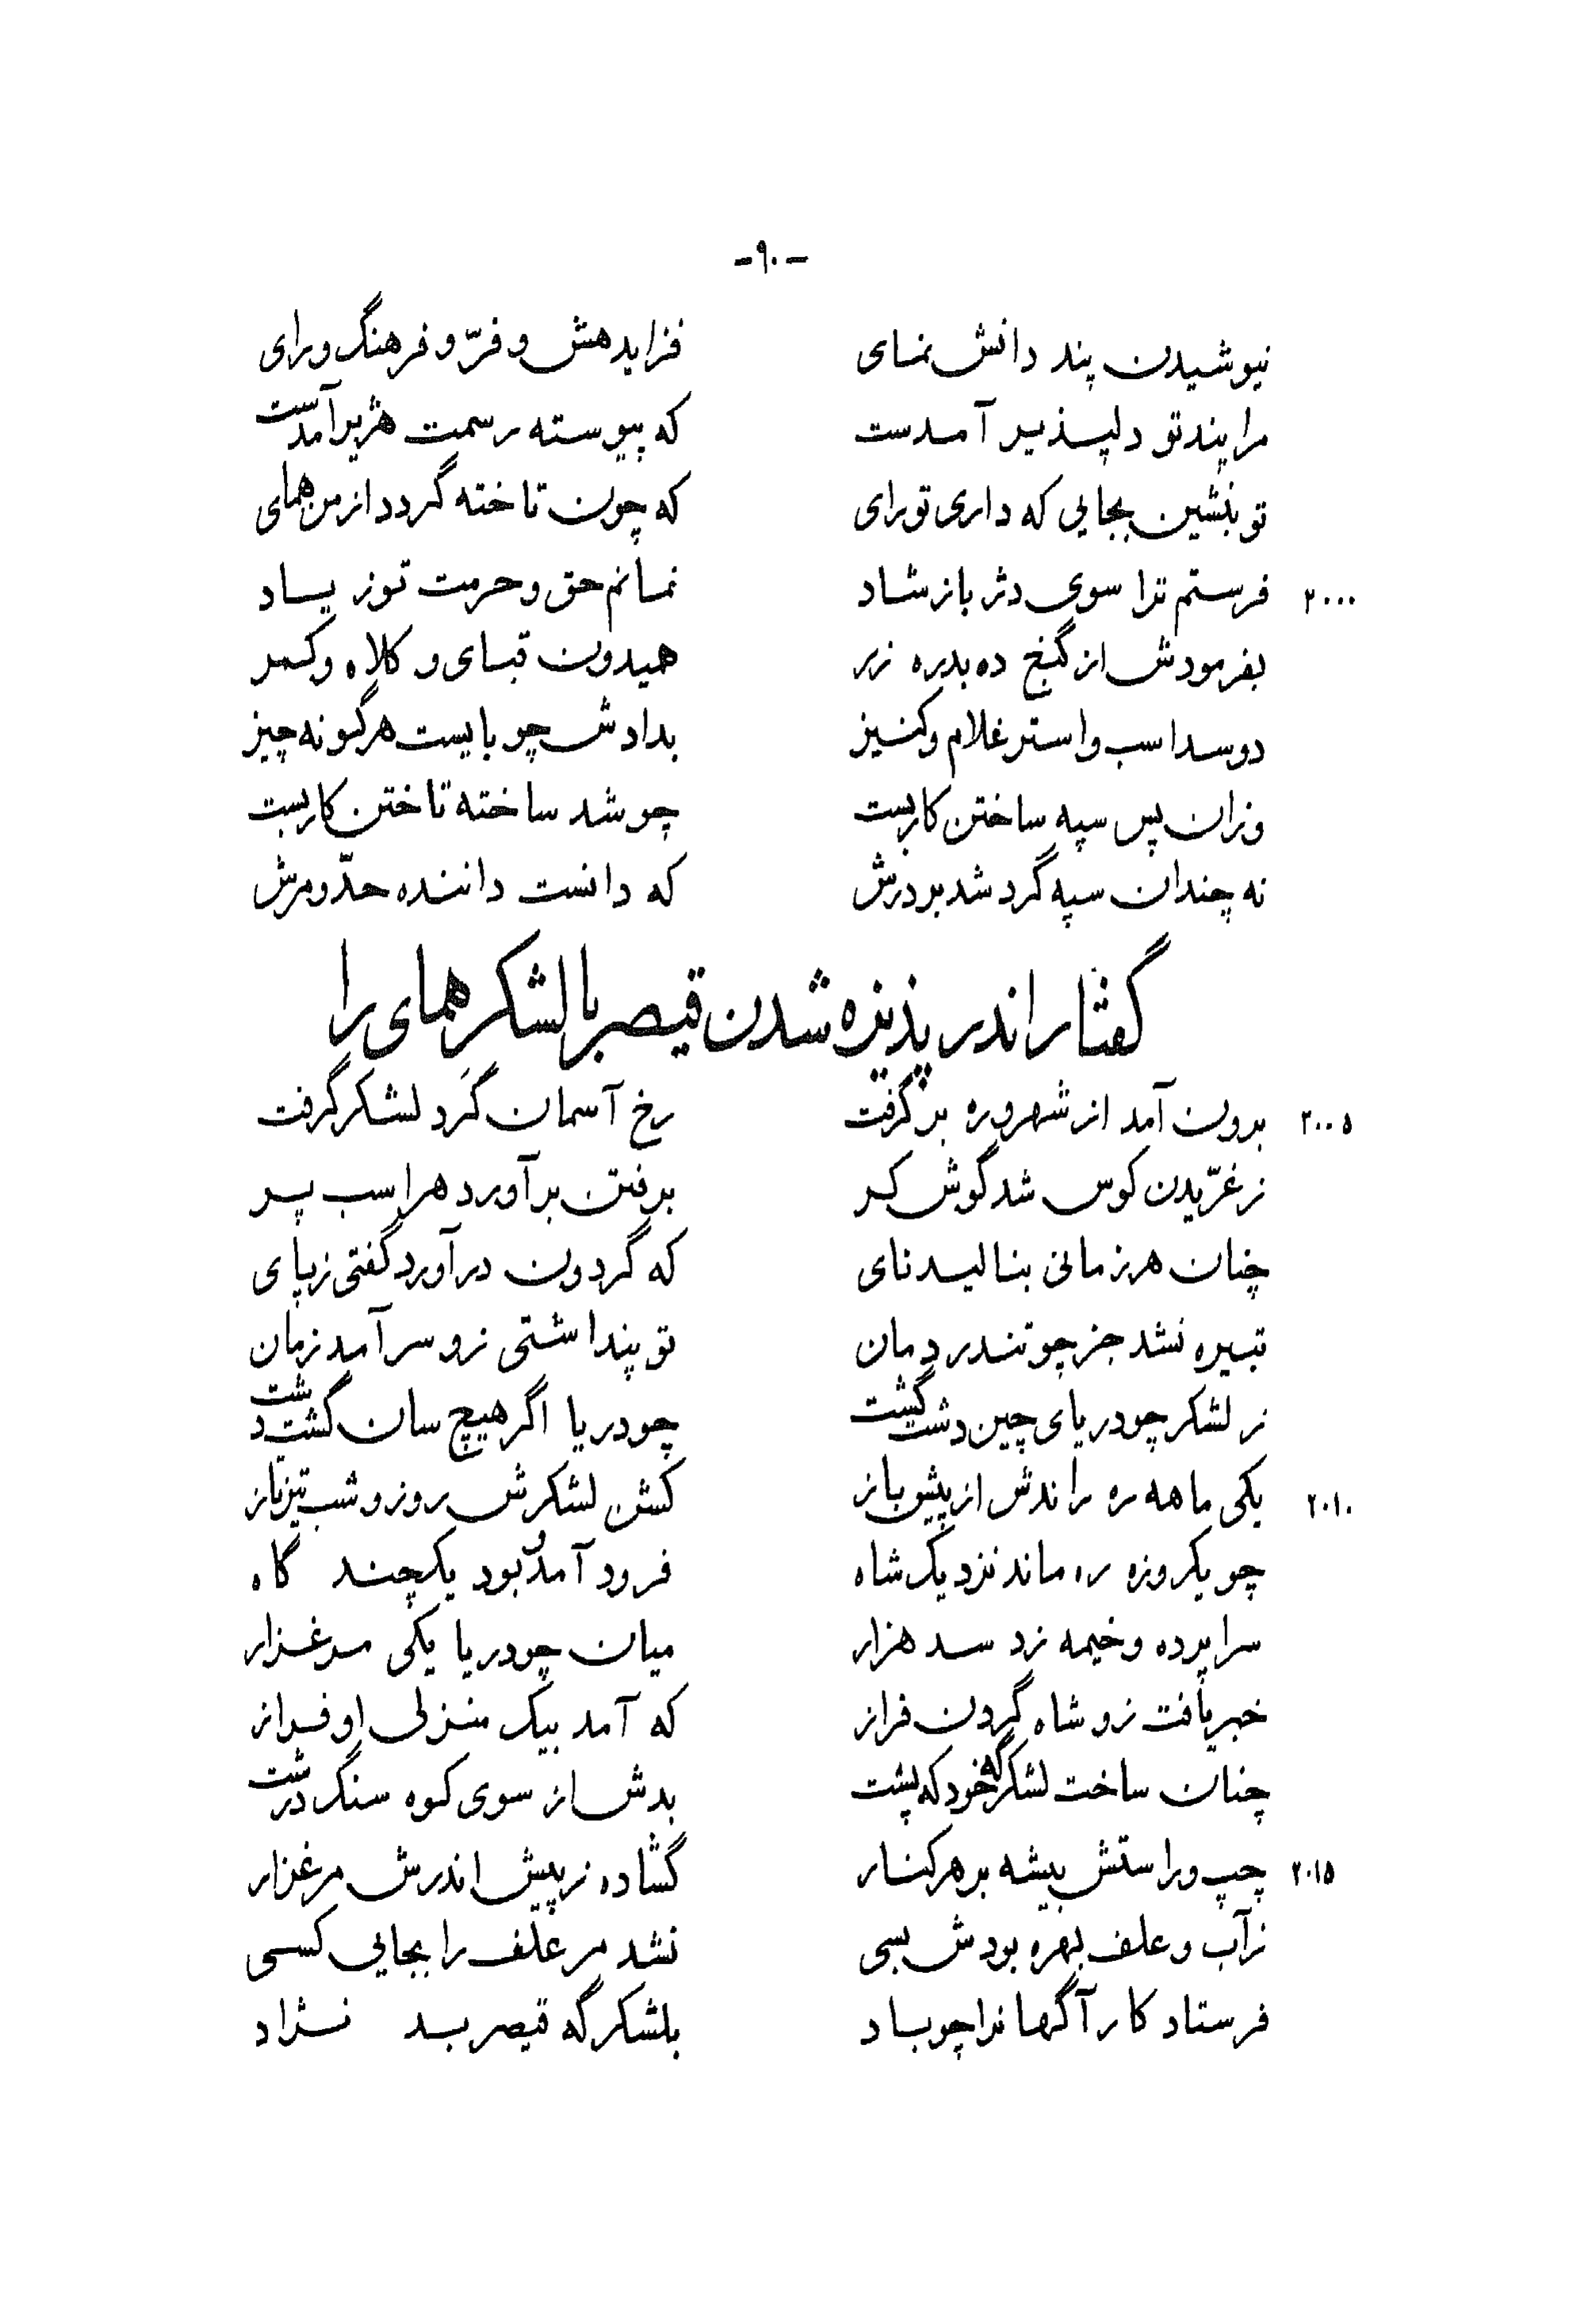 -۹۰-
نیوشیدن پند دانش نمای فزاید هش و فرّ و فرهنگ و رای
مرا پند تو دلپذیر آمدست که پیوسته رسمت هژیر آمدست
تو بنشین بجایی که داری تو رای که چون تاخته گردد از من همای
۲۰۰۰ فرستم ترا سوی دژ باز شاد نمانم حق و حرمت تو ز یاد
بفرمودش از گنج ده بدره زر همیدون قبای و کلاه و کمر
دو سد اسب و استر غلام و کنیز بدادش چو بایست هر گونه چیز
وزان پس سپه ساختن کار بست چو شد ساخته تاختن کار بست
نه چندان سپه گرد شد بر درش که دانست داننده حدّ و مرش
گفتار اندر پذیره شدن قیصر با لشکر همای را
۲۰۰۵ برون آمد از شهر و ره بر گرفت رخ آسمان گَرد لشکر گرفت
ز غرّیدن کوس شد گوش کر برفتن بر آورد هر اسب پر
چنان هر زمانی بنالید نای که گردون در آورد گفتی ز پای
تبیره نشد جز چو تندر دمان تو پنداشتی زو سر آمد زمان
ز لشکر چو دریای چین دشت گشت چو دریا اگر هیچ سان گشت دشت
۲۰۱۰ یکی ماهه ره راندش از پیشو باز کشن لشکرش روز و شب تیز تاز
چو یکروزه ره ماند نزدیک شاه فرود آمد و بود یکچند گاه
سراپرده و خیمه زد سد هزار میان چو دریا یکی مرغزار
خبر یافت زو شاه گردن فراز که آمد بیک منزلی او فراز
چنان ساخت لشکرگه خود که پشت بدش از سوی کوه سنگ درشت
۲۰۱۵ چپ و راستش بیشه بر هر کنار گشاده ز پیش اندرش مرغزار
ز آب و علف بهره بودش بسی نشد مر علف را بجایی کسی
فرستاد کار آگهانرا چو باد بلشکرگه قیصر بد نژاد